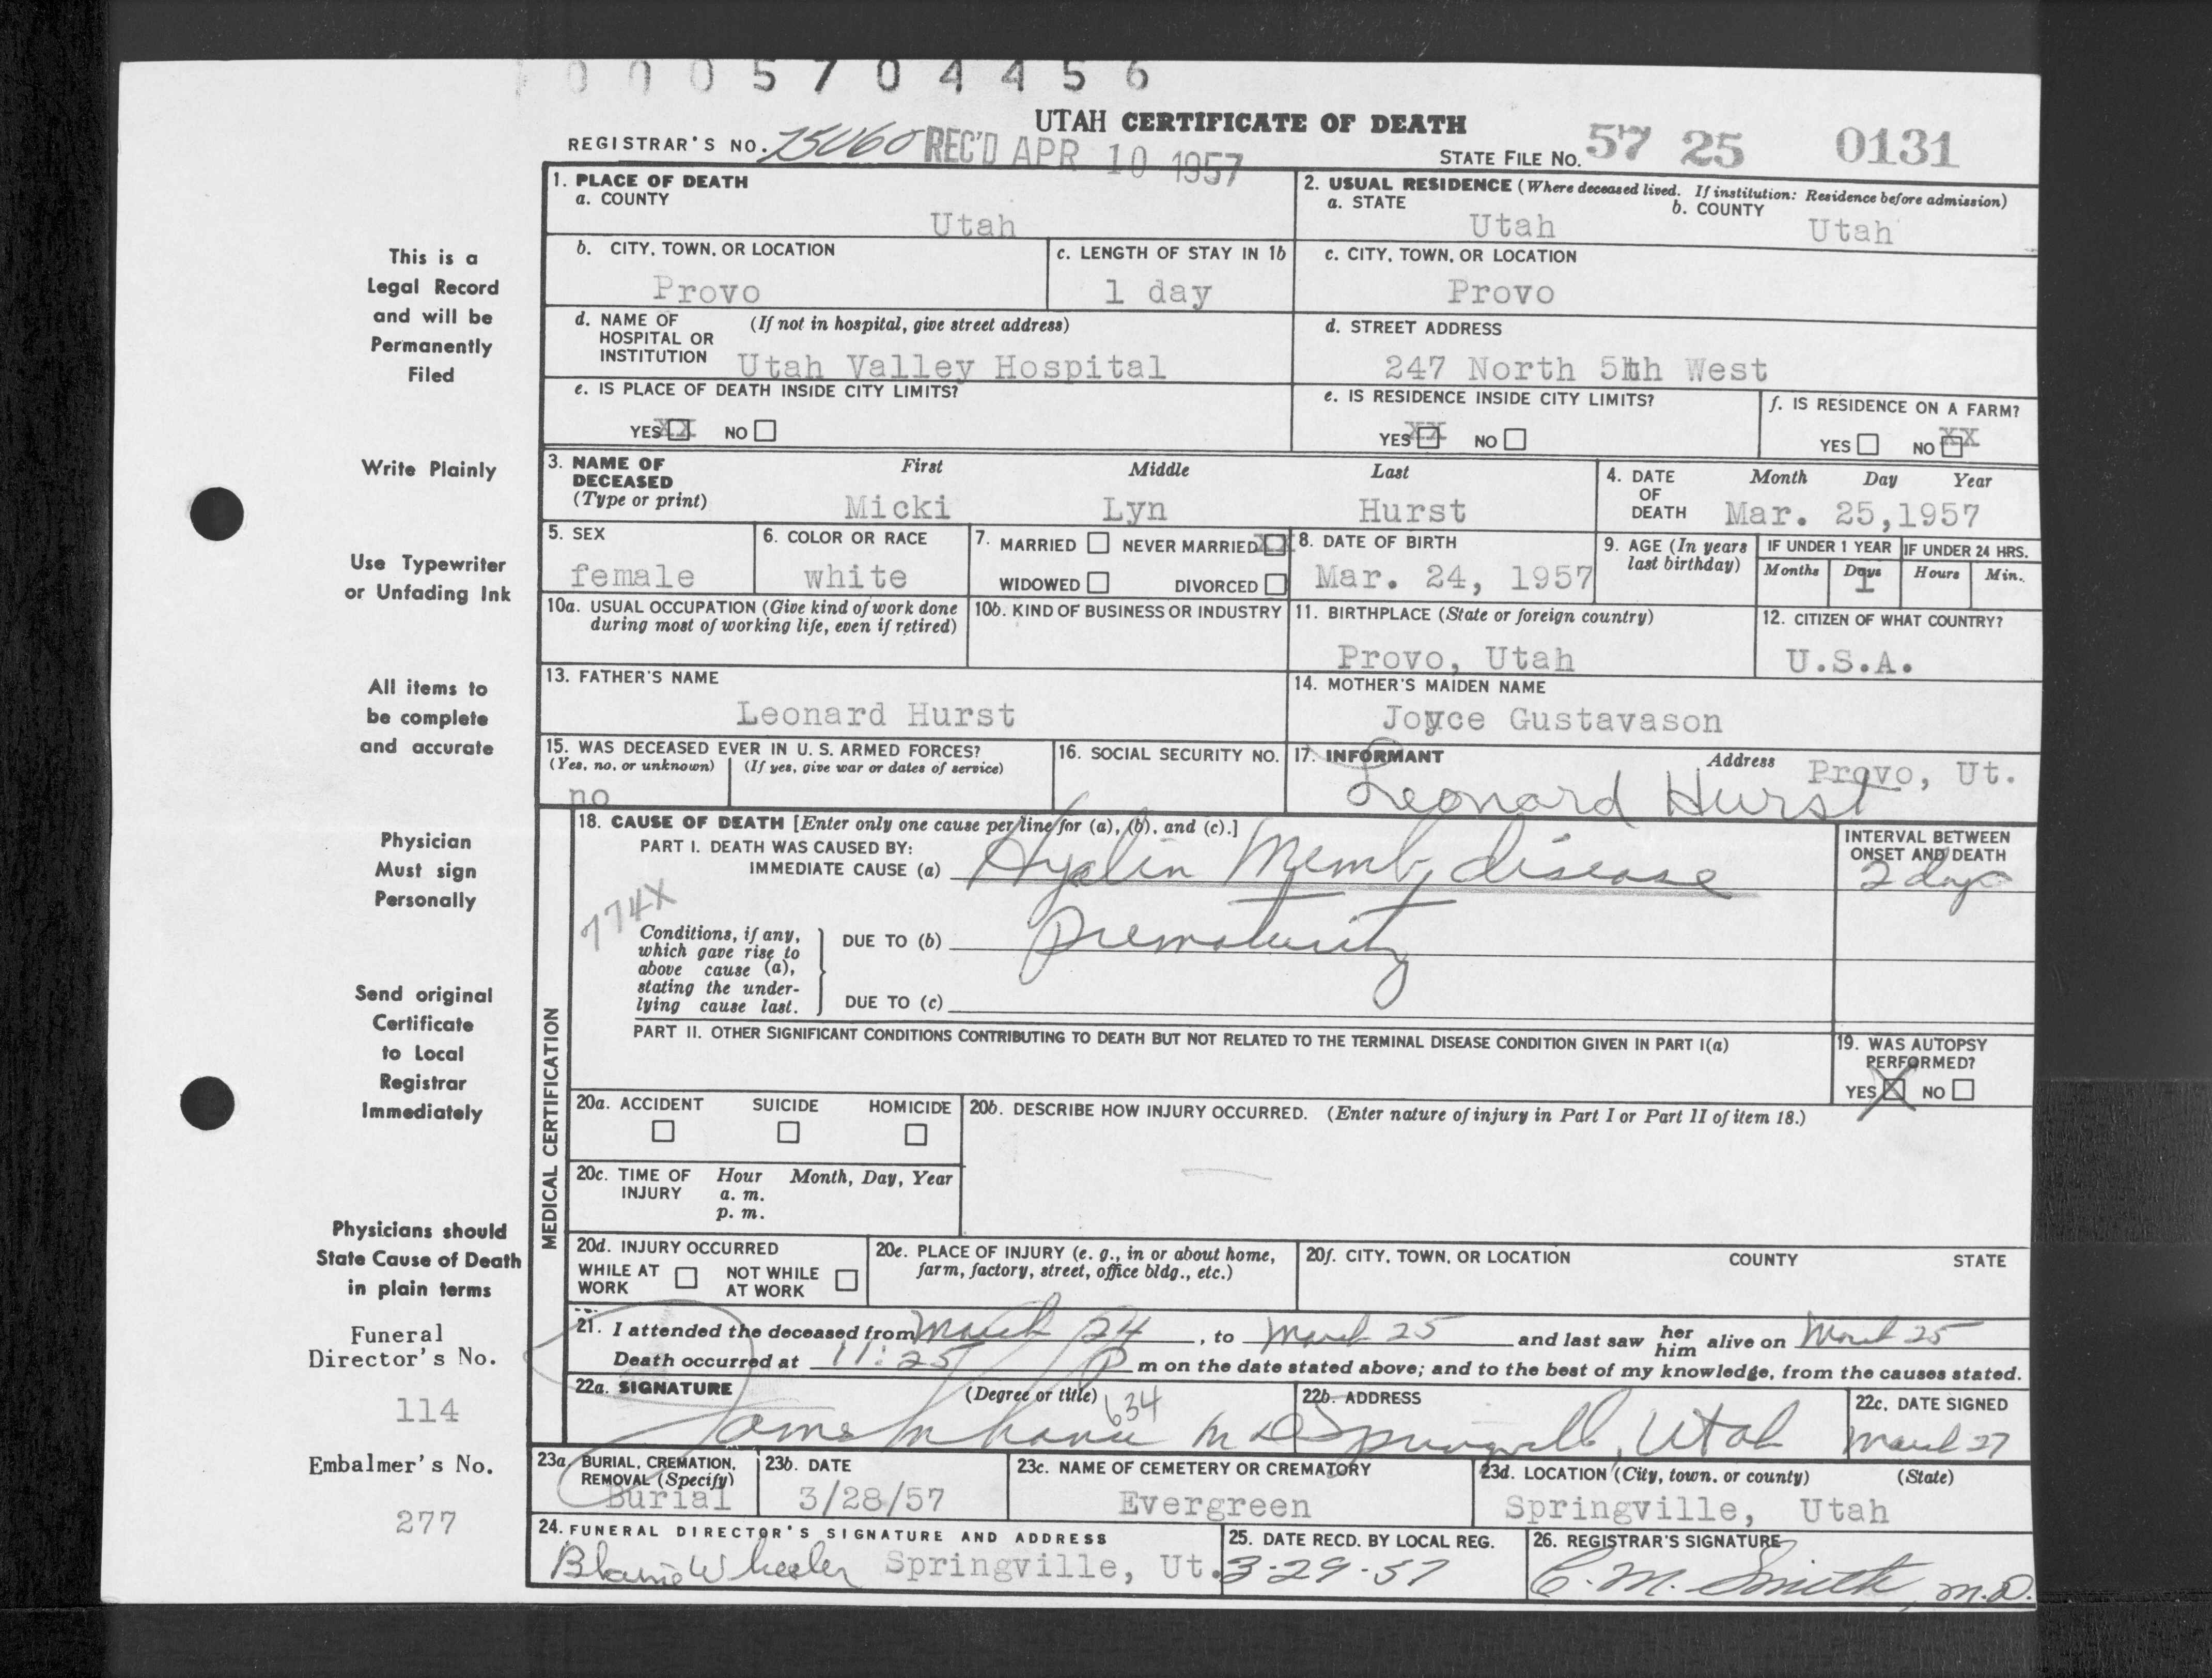 0 0 0 5 7 0 4 4 5 6
UTAH CERTIFICATE OF DEATH
REGISTRAR'S NO. REC'D APR 10 1957
STATE FILE NO. 57 25 0131
1. PLACE OF DEATH
a. COUNTY
Utah
2. USUAL RESIDENCE (Where deceased lived. If institution: Residence before admission)
a. STATE b. COUNTY
Utah Utah
b. CITY, TOWN, OR LOCATION
Provo
c. LENGTH OF STAY IN 1b
1 day
c. CITY, TOWN, OR LOCATION
Provo
d. NAME OF (If not in hospital, give street address)
HOSPITAL OR
INSTITUTION Utah Valley Hospital
d. STREET ADDRESS
247 North 5th West
e. IS PLACE OF DEATH INSIDE CITY LIMITS?
YES XX NO
e. IS RESIDENCE INSIDE CITY LIMITS?
YES XX NO
f. IS RESIDENCE ON A FARM?
YES NO XX
3. NAME OF First Middle Last
DECEASED
(Type or print) Micki Lyn Hurst
4. DATE Month Day Year
OF
DEATH Mar. 25,1957
5. SEX
female
6. COLOR OR RACE
white
7. MARRIED NEVER MARRIED XX
WIDOWED DIVORCED
8. DATE OF BIRTH
Mar. 24, 1957
9. AGE (In years
last birthday)
IF UNDER 1 YEAR IF UNDER 24 HRS.
Months Days Hours Min.
1
10a. USUAL OCCUPATION (Give kind of work done
during most of working life, even if retired)
10b. KIND OF BUSINESS OR INDUSTRY
11. BIRTHPLACE (State or foreign country)
Provo, Utah
12. CITIZEN OF WHAT COUNTRY?
U.S.A.
13. FATHER'S NAME
Leonard Hurst
14. MOTHER'S MAIDEN NAME
Joyce Gustavason
15. WAS DECEASED EVER IN U. S. ARMED FORCES?
(Yes, no, or unknown) (If yes, give war or dates of service)
no
16. SOCIAL SECURITY NO.
17. INFORMANT Address Provo, Ut.
Leonard Hurst
18. CAUSE OF DEATH [Enter only one cause per line for (a), (b), and (c).]
PART I. DEATH WAS CAUSED BY:
IMMEDIATE CAUSE (a) Hyalin Memb, disease
INTERVAL BETWEEN
ONSET AND DEATH
2 days
774X
Conditions, if any,
which gave rise to
above cause (a),
stating the under-
lying cause last.
DUE TO (b) Prematurity
DUE TO (c)
PART II. OTHER SIGNIFICANT CONDITIONS CONTRIBUTING TO DEATH BUT NOT RELATED TO THE TERMINAL DISEASE CONDITION GIVEN IN PART I(a)
19. WAS AUTOPSY
PERFORMED?
YES X NO
MEDICAL CERTIFICATION
20a. ACCIDENT SUICIDE HOMICIDE
20b. DESCRIBE HOW INJURY OCCURRED. (Enter nature of injury in Part I or Part II of item 18.)
20c. TIME OF Hour Month, Day, Year
INJURY a. m.
p. m.
20d. INJURY OCCURRED
WHILE AT NOT WHILE
WORK AT WORK
20e. PLACE OF INJURY (e. g., in or about home,
farm, factory, street, office bldg., etc.)
20f. CITY, TOWN, OR LOCATION COUNTY STATE
21. I attended the deceased from March 24, to March 25 and last saw her him alive on March 25
Death occurred at 11:25 P m on the date stated above; and to the best of my knowledge, from the causes stated.
22a. SIGNATURE (Degree or title)
634
M D
22b. ADDRESS
Springville, Utah
22c. DATE SIGNED
March 27
23a. BURIAL, CREMATION,
REMOVAL (Specify)
Burial
23b. DATE
3/28/57
23c. NAME OF CEMETERY OR CREMATORY
Evergreen
23d. LOCATION (City, town, or county) (State)
Springville, Utah
24. FUNERAL DIRECTOR'S SIGNATURE AND ADDRESS
Blaine Wheeler Springville, Ut.
25. DATE RECD. BY LOCAL REG.
3-29-57
26. REGISTRAR'S SIGNATURE
C. M. Smith, M.D.
This is a
Legal Record
and will be
Permanently
Filed
Write Plainly
Use Typewriter
or Unfading Ink
All items to
be complete
and accurate
Physician
Must sign
Personally
Send original
Certificate
to Local
Registrar
Immediately
Physicians should
State Cause of Death
in plain terms
Funeral
Director's No.
114
Embalmer's No.
277